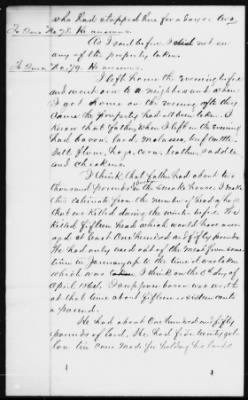 who had stopped there for a day or two
To Ques No. 78. He answers.
As I said before I did not see
any of the property taken.
To Ques No. 79. He answers.
I left home the evening before
and went over to a neighbors and when
I got home on the evening after they
came the property had all been taken. I
know that father when I left in the evening
had bacon, lard, molasses, fat cattle,
salt, flour, hogs, corn, leather, saddle
and chickens.
I think that father had about two
thousand pounds in the smoke house. I make
this estimate from the number of head of hogs
that we killed during the winter before. We
killed fifteen head which would have aver-
aged at least one hundred and fifty pounds.
We had only used out of the meat from some
time in January up to the time it was taken
which was I think on the 6th day of
April 1862. I suppose bacon was worth
at that time about fifteen or sixteen cents
a pound.
He had about one hundred and fifty
pounds of lard. He had five twenty gal-
lon tin cans made for holding his lard